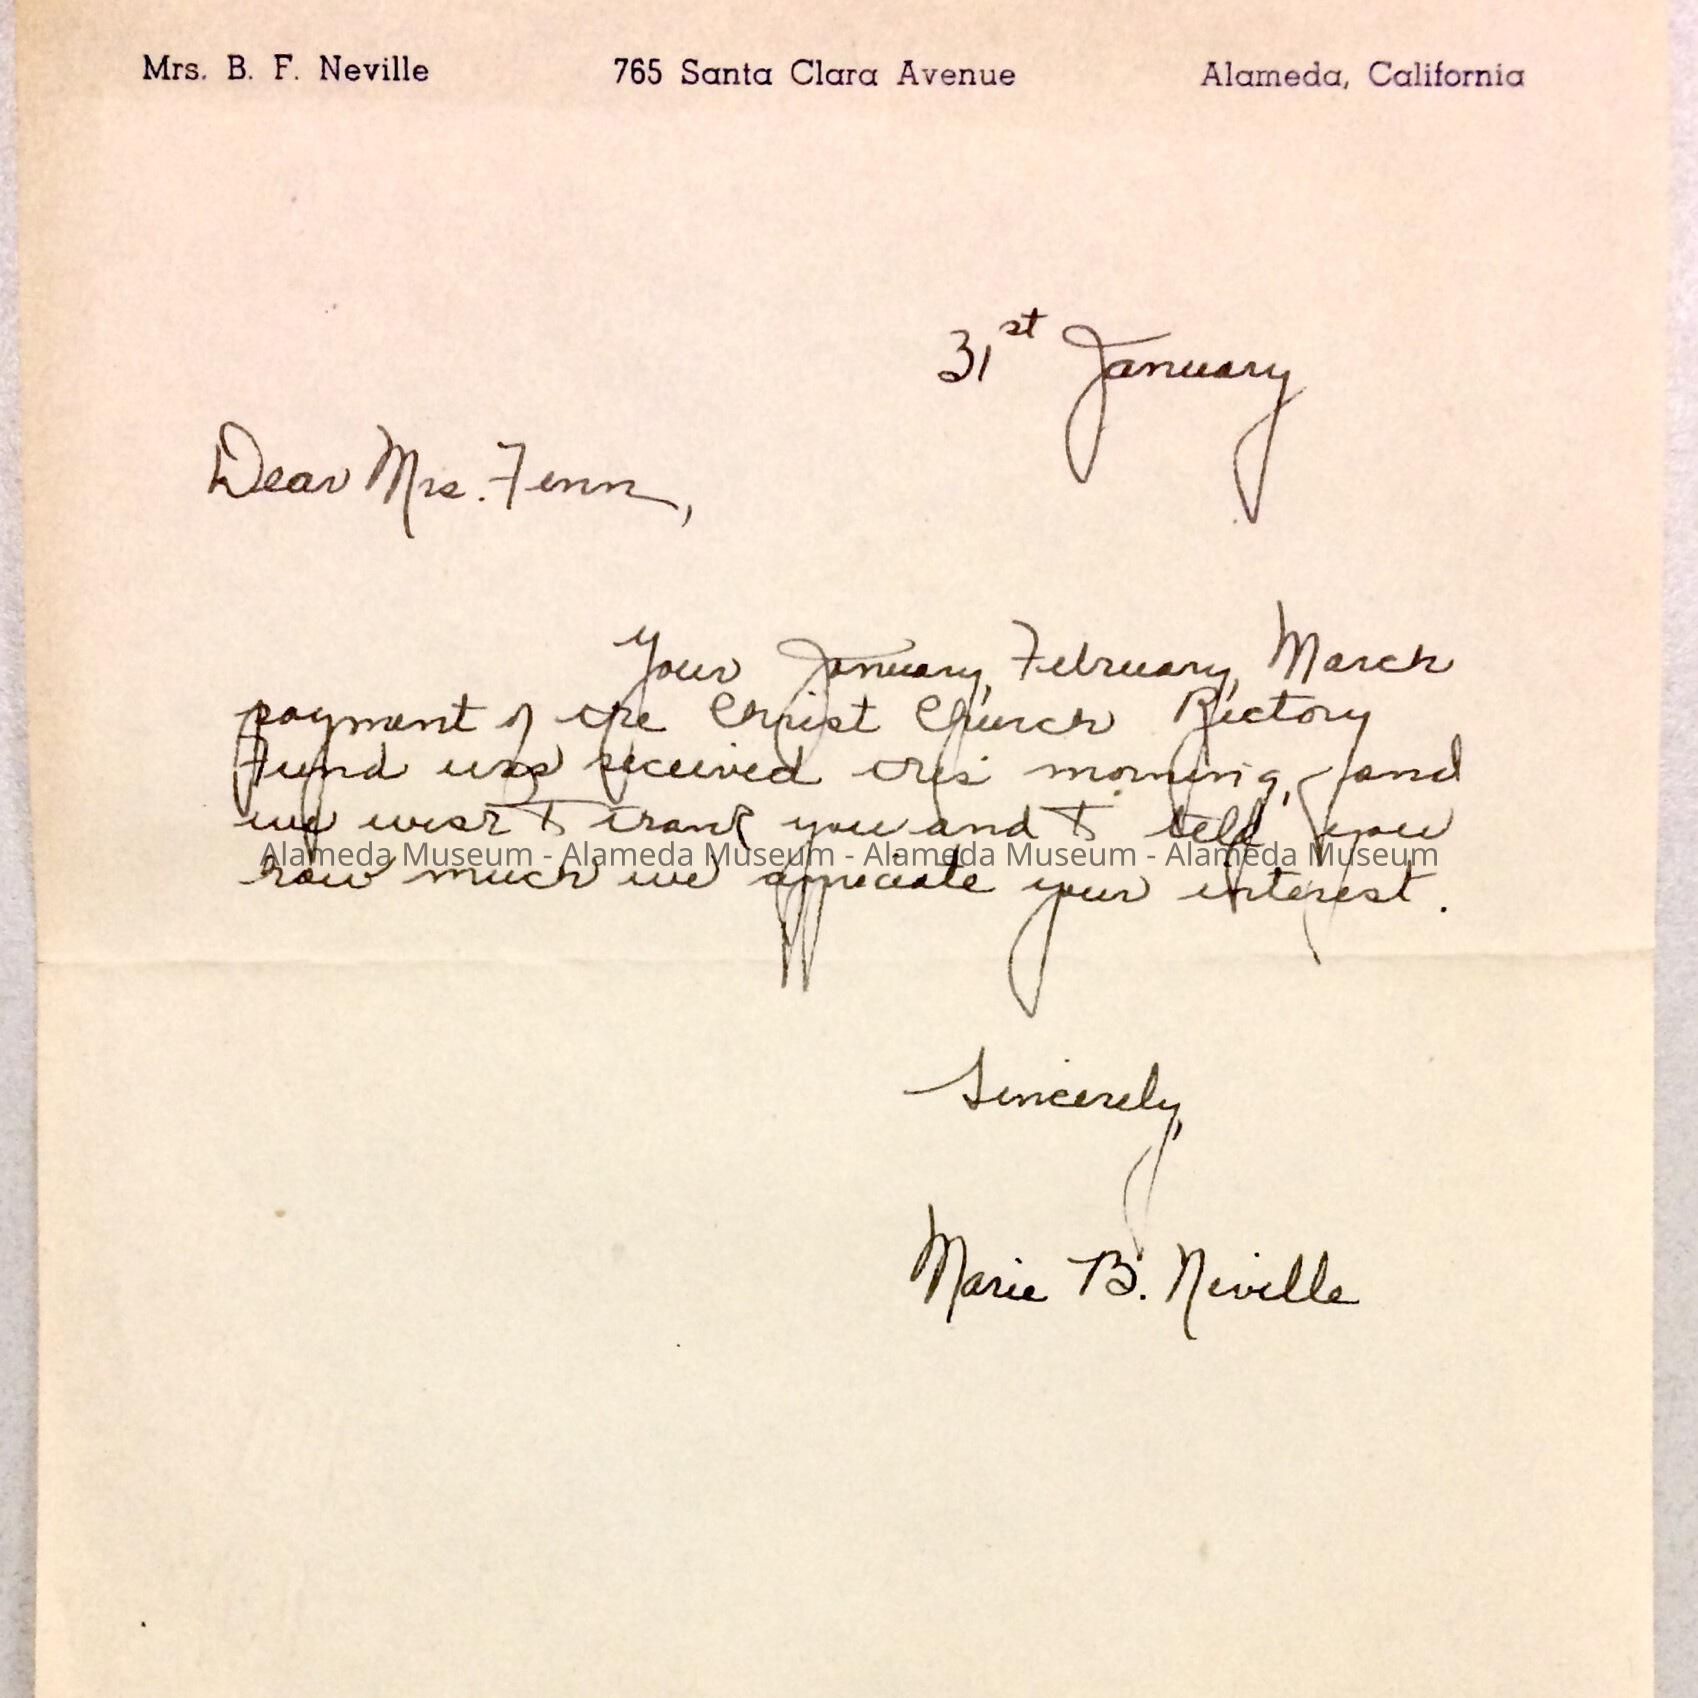 Mrs. B. F. Neville 765 Santa Clara Avenue Alameda, California
31st January
Dear Mrs. Fenn,
Your January, February, March
payment of the Christ Church Rectory
Fund was received this morning, and
we wish to thank you and to tell you
Alameda Museum - Alameda Museum - Alameda Museum - Alameda Museum
how much we appreciate your interest.
Sincerely,
Marie B. Neville